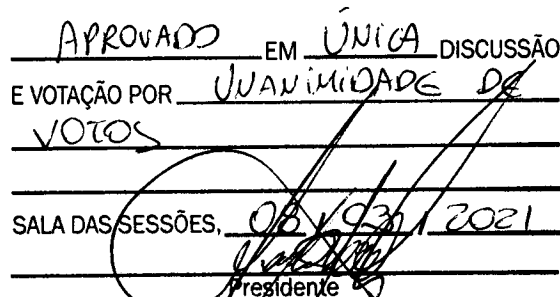 APROVADO EM ÚNICA DISCUSSÃO
E VOTAÇÃO POR UNANIMIDADE DE
VOTOS
SALA DAS SESSÕES, 08 / 03 / 2021
Presidente